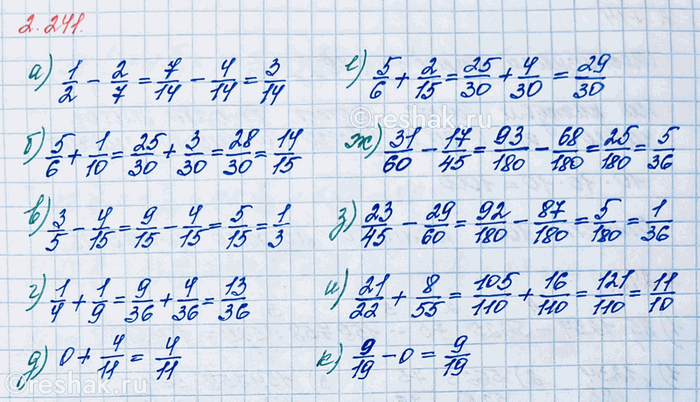 2.241.
а) 1/2 - 2/7 = 7/14 - 4/14 = 3/14
б) 5/6 + 1/10 = 25/30 + 3/30 = 28/30 = 14/15
в) 3/5 - 4/15 = 9/15 - 4/15 = 5/15 = 1/3
г) 1/4 + 1/9 = 9/36 + 4/36 = 13/36
д) 0 + 4/11 = 4/11
е) 5/6 + 2/15 = 25/30 + 4/30 = 29/30
©reshak.ru
ж) 31/60 - 17/45 = 93/180 - 68/180 = 25/180 = 5/36
з) 23/45 - 29/60 = 92/180 - 87/180 = 5/180 = 1/36
и) 21/22 + 8/55 = 105/110 + 16/110 = 121/110 = 11/10
к) 9/19 - 0 = 9/19
©reshak.ru